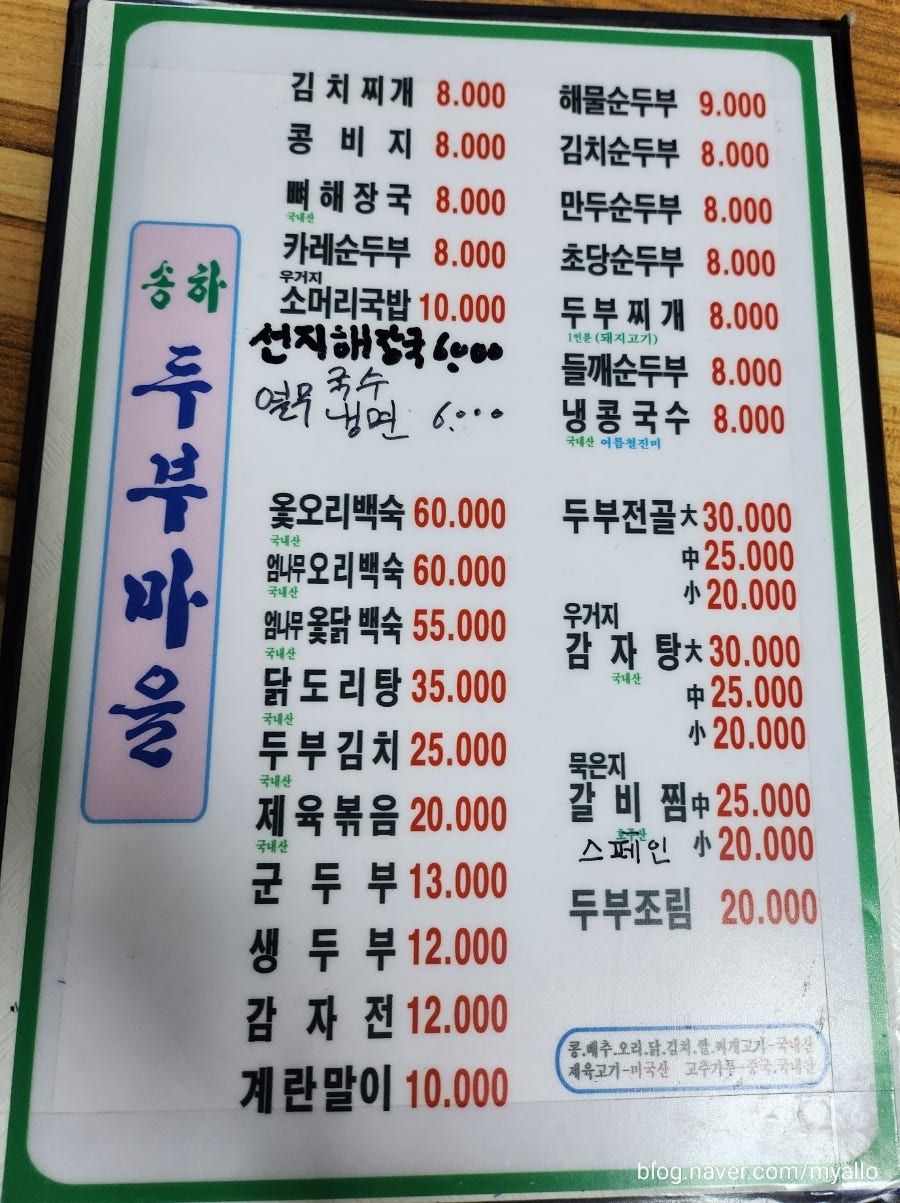 송하
두부마을
김치찌개 8.000
콩비지 8.000
뼈해장국 8.000
국내산
카레순두부 8.000
우거지
소머리국밥 10.000
선지해장국 6.000
열무 국수
냉면 6.000
해물순두부 9.000
김치순두부 8.000
만두순두부 8.000
초당순두부 8.000
두부찌개 8.000
1인분(돼지고기)
들깨순두부 8.000
냉콩국수 8.000
국내산 여름철진미
옻오리백숙 60.000
국내산
엄나무오리백숙 60.000
국내산
엄나무옻닭백숙 55.000
국내산
닭도리탕 35.000
국내산
두부김치 25.000
국내산
제육볶음 20.000
국내산
군두부 13.000
생두부 12.000
감자전 12.000
계란말이 10.000
두부전골 大 30.000
中 25.000
小 20.000
우거지
감자탕 大 30.000
국내산
中 25.000
小 20.000
묵은지
갈비찜 中 25.000
호주산
스페인 小 20.000
두부조림 20.000
콩.배추.오리.닭.김치.쌀.찌개고기-국내산
제육고기-미국산 고추가루-중국.국내산
blog.naver.com/myallo